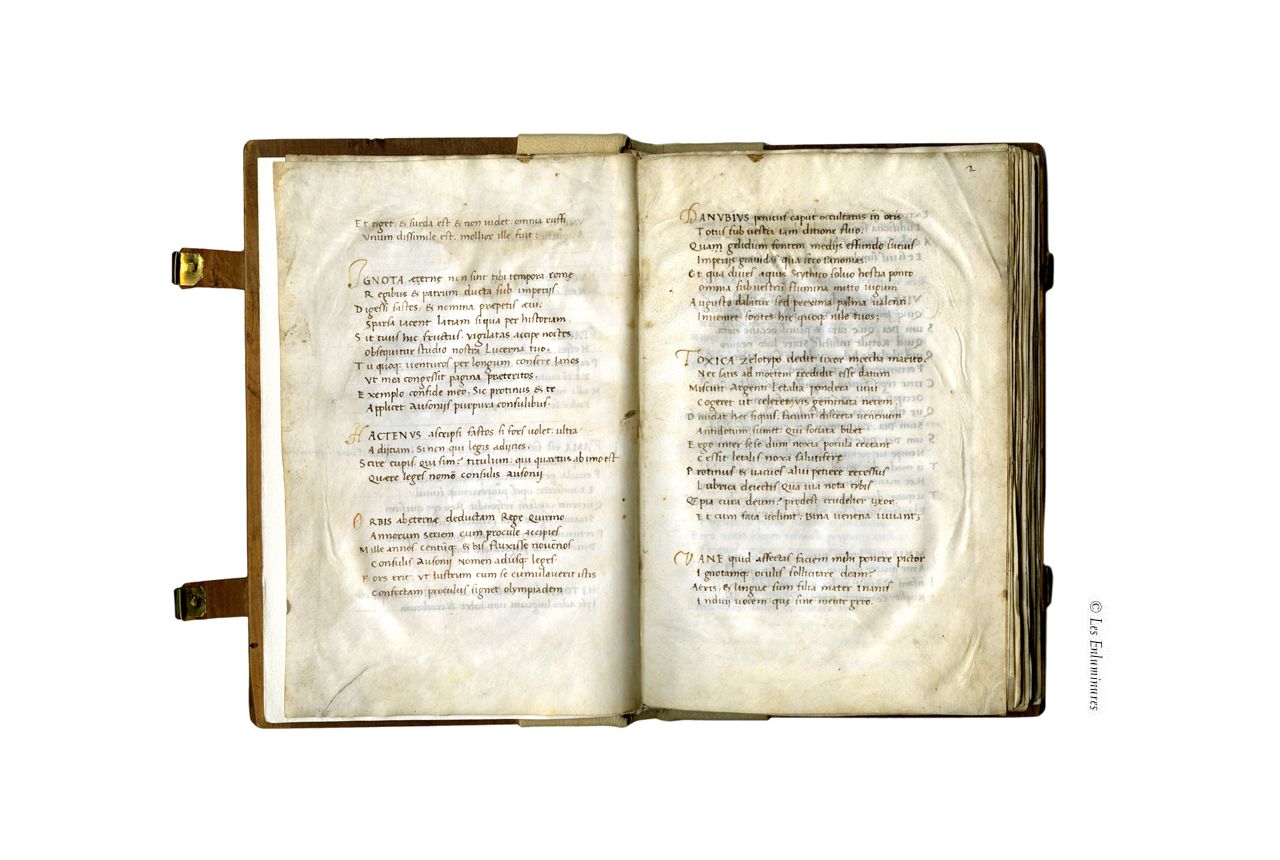 Et riget, & surda est & non videt: omnia ruffi
Vnum dissimile est. mollior ille fuit:
IGNOTA æternæ non sint tibi tempora romæ
Regibus & patrum ducta sub imperijs
Digessi fastos, & nomina præpetis æui.
Sparsa iacent latiam siqua per historiam.
Sit tuus hic fructus. vigilatas accipe noctes.
obsequitur studio nostra Lucerna tuo.
Tu quoq; venturos per longum consere Ianos
Vt mea congessit pagina præteritos.
Exemplo confide meo. Sic protinus & te
Applicet Ausonijs purpura consulibus.
HACTENVS ascripsi fastos. si fors volet, ultra
Adijciam. Si non qui legis adijcies.
Scire cupis qui sim? titulum qui quartus ab imo est
Quære. leges nomen consulis ausonij
ORBIS ab æternæ deductam Rege Quirino
Annorum seriem cum procule accipies
Mille annos centumq; & bis fluxisse nouenos
Consulis Ausonij Nomen adusq; leges
Fors erit. Vt lustrum cum se cumulauerit istis
Confectam proculus signet olympiadem
2
DANVBIVS penitus caput occultatus in oris
Totus sub uestra iam ditione fluo.
Quam gelidum fontem medijs effundo sueuis
Imperijs grauidas qua seco panonias.
Et qua diues aquis Scythico soluo hostia ponto
omnia sub uestrum flumina mitto iugum
Augusto dabitur sed proxima palma ualenti
Inueniet fontes hic quoq; nile tuos;
TOXICA zelotypo dedit uxor mœcha marito.
Nec satis ad mortem credidit esse datum
Miscuit Argenti Letalia pondera uiui
Cogeret ut celerem uis geminata necem.
Diuidat hæc siquis. faciunt discreta uenenum
Antidotum sumet. qui sociata bibet
Ergo inter sese dum noxia pocula certant
Cessit letalis noxa salutiferæ
Protinus & uacuos alui petiere recessus
Lubrica deiectis qua uia nota cibis
Q pia cura deum? prodest crudelior uxor.
Et cum fata uolunt. Bina uenena iuuant;
VANE quid affectas faciem mihi ponere pictor
Ignotamq; oculis sollicitare deam?
Aeris & linguæ sum filia mater inanis
Indicij uocem quæ sine mente gero.
© Les Enluminures